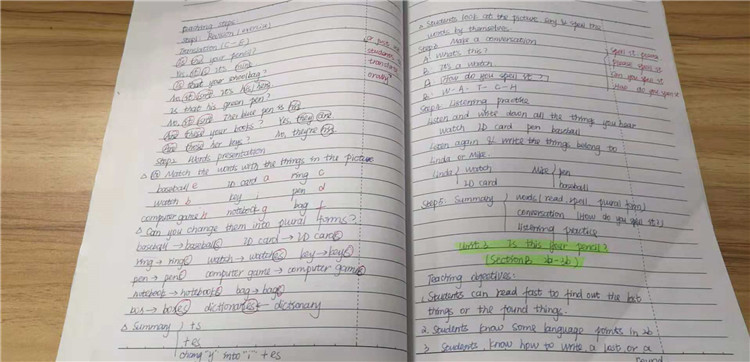 Teaching steps
Step1: Revision (exercise)
Translation (C-E)
Is this your pencil?
Yes, it is. It's mine
Is that your schoolbag?
No, it isn't. It's
Is that his green pen?
No, it isn't. The blue pen is his
Are these your books? Yes, they are
Are these her keys? No, they're
students to
translate
orally
Step2 Words presentation
△ ① Match the words with the things in the picture
baseball e ID card a ring c
watch b key i pen d
computer game h notebook g bag f
△ Can you change them into plural forms?
baseball → baseballs ID card → ID cards
ring → rings watch → watches key → keys
pen → pens computer game → computer games
notebook → notebooks bag → bags
box → boxes dictionaries ← dictionary
△ Summary +s
+es
change "y" into "i" + es
△ Students look at the picture and spell the
words by themselves
Step3 Make a conversation
A: What's this?
B: It's a watch
A: How do you spell it?
B: W-A-T-C-H
Spell it, please
please spell it
Can you spell it
How do you spell it
Step4 Listening practice
Listen and write down all the things you hear
watch ID card pen baseball
Listen again & write the things belong to
Linda or Mike
Linda watch Mike pen
ID card baseball
Step5: Summary words (read, spell, plural form)
conversation (How do you spell it?)
listening practice
Unit 3 Is this your pencil?
(Section B 2a-3b)
Teaching objectives:
1. Students can read fast to find out the lost
things or the found things.
2. Students know some language points in 2b
3. Students know how to write a lost or a
found